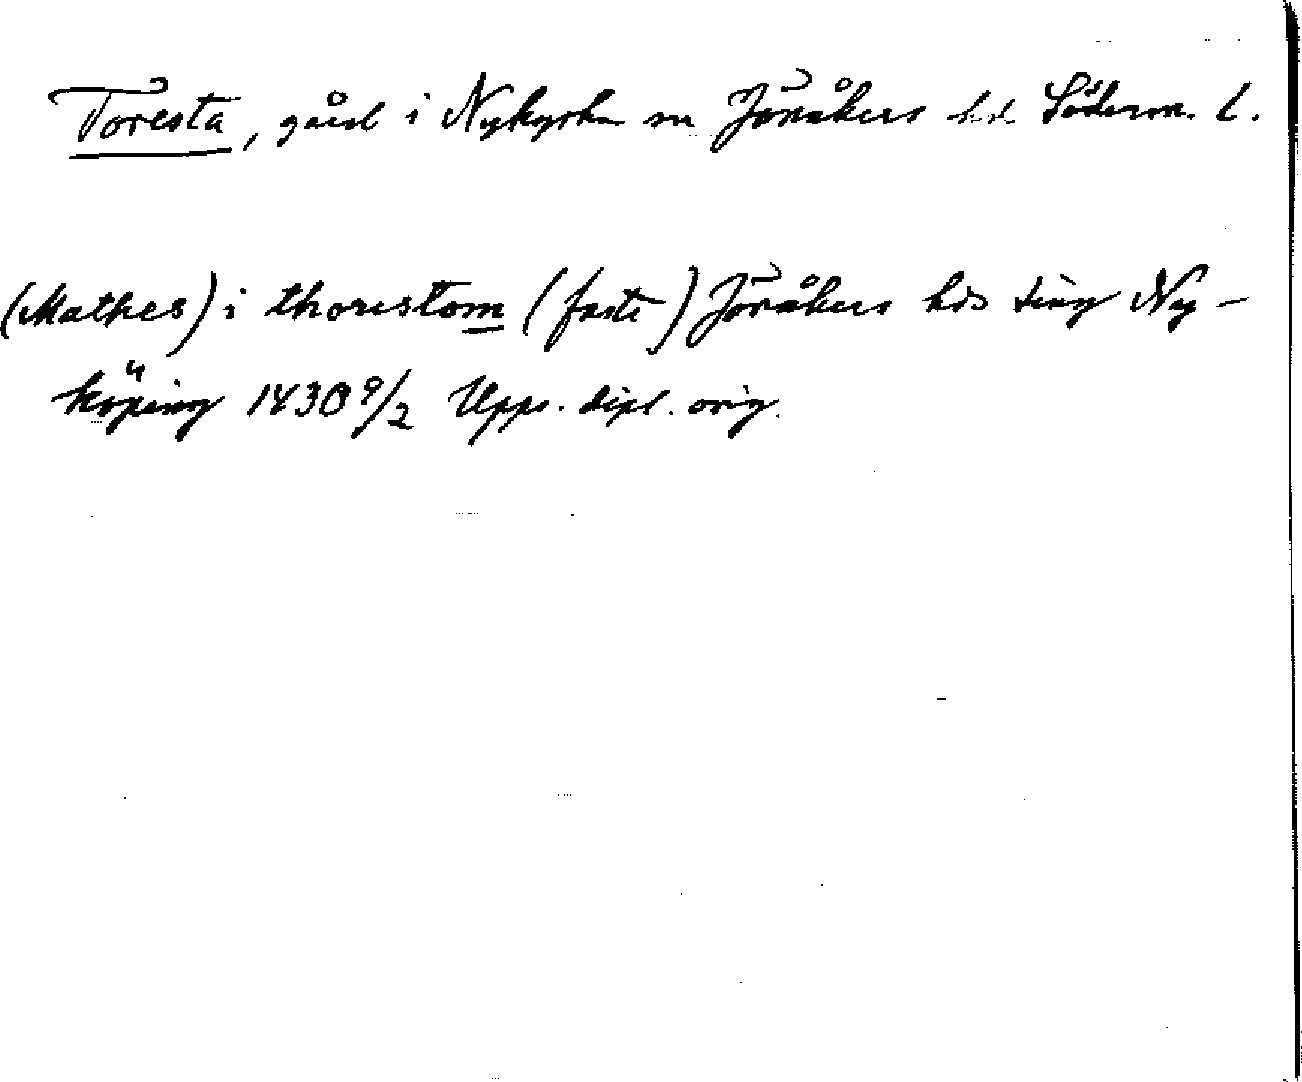 Toresta, gård i Nykyrka sn Jönåkers hd. Söderm. l.
(Mathes) i thorestom (faste) Jönåkers hds ting Ny-
köping 1430 9/2 Upps. dipl. orig.